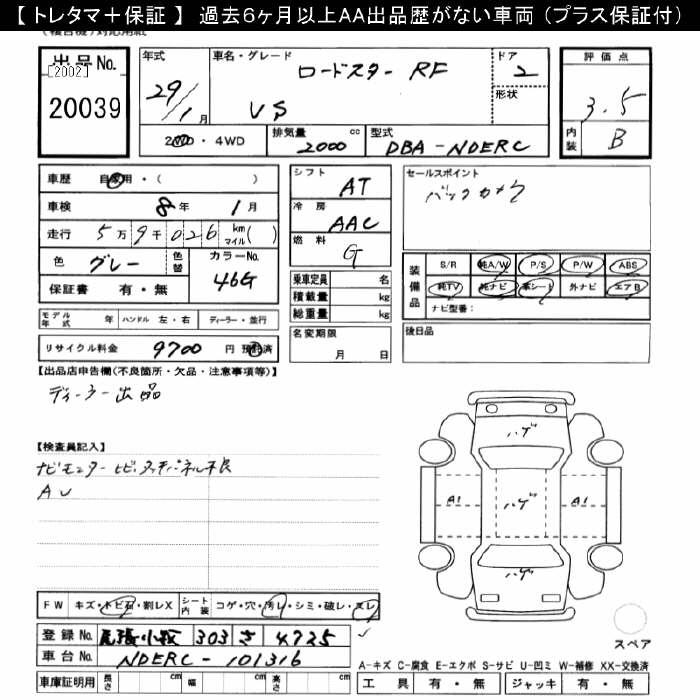 【 トレタマ＋保証 】 過去6ヶ月以上AA出品歴がない車両 (プラス保証付)
出品No.
[2002]
20039
年式
29/1月
車名・グレード
ロードスター RF
VS
ドア
2
形状
評価点
3.5
内装
B
2WD・4WD
排気量 2000 cc
型式 DBA-NDERC
車歴 自家用・( )
車検 8年 1月
走行 5万9千026 km マイル( )
色 グレー 色替
カラーNo. 46G
保証書 有・無
シフト AT
冷房 AAC
燃料 G
乗車定員 名
積載量 kg
総重量 kg
セールスポイント
バックカメラ
装備品
S/R 純A/W P/S P/W ABS
純TV 純ナビ 革シート 外ナビ エアB
ナビ型番:
モデル年式 年 ハンドル 左・右 ディーラー・並行
リサイクル料金 9700 円 預託済
名変期限
月 日
後日品
【出品店申告欄(不良箇所・欠品・注意事項等)】
ディーラー出品
【検査員記入】
ナビモニターヒビ タッチパネル不良
AU
ハゲ
A1 ハゲ A1
ハゲ
スペア
FW キズ・トビ石・割レX シート内装 コゲ・穴・汚レ・シミ・破レ・スレ
登録No. 尾張小牧 303 さ 4725
車台No. NDERC-101316
A-キズ C-腐食 E-エクボ S-サビ U-凹ミ W-補修 XX-交換済
車庫証明用 長さ cm 幅 cm 高さ cm
工具 有・無 ジャッキ 有・無